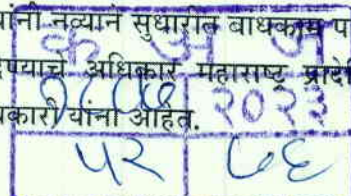 यांनी नव्याने सुधारीत बांधकाम प
देण्याचे अधिकार महाराष्ट्र प्रादे
धकारी यांना आहेत.
२०२३
५२ ७६